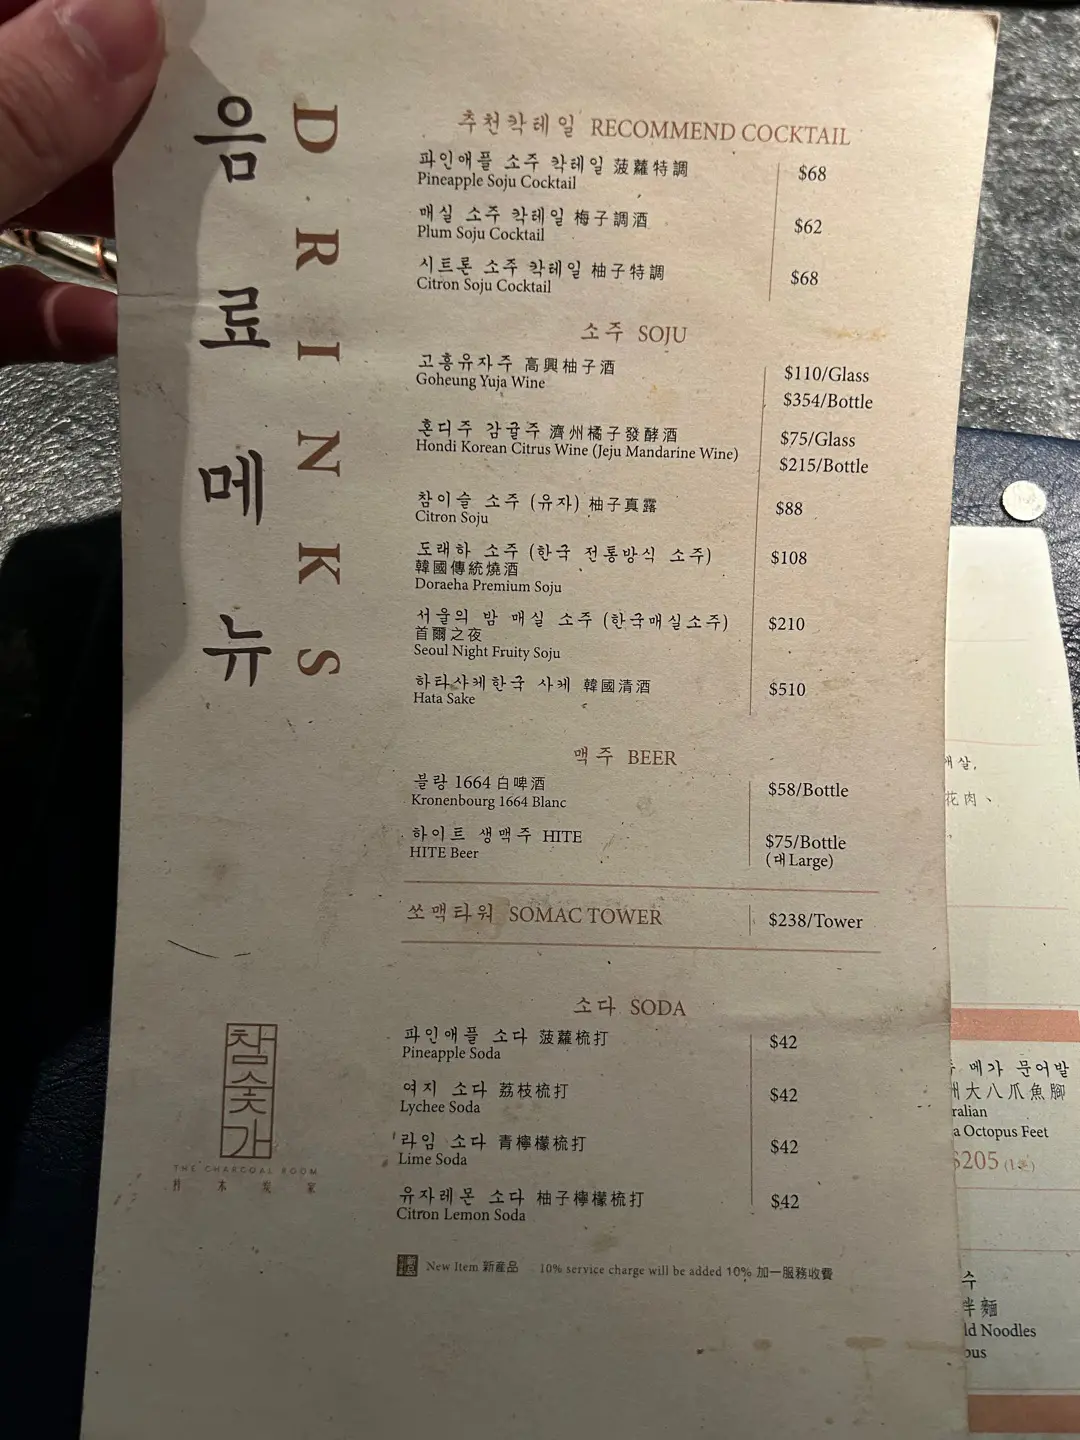 음료메뉴
DRINKS
추천칵테일 RECOMMEND COCKTAIL
파인애플 소주 칵테일 菠蘿特調
Pineapple Soju Cocktail
$68
매실 소주 칵테일 梅子調酒
Plum Soju Cocktail
$62
시트론 소주 칵테일 柚子特調
Citron Soju Cocktail
$68
소주 SOJU
고흥유자주 高興柚子酒
Goheung Yuja Wine
$110/Glass
$354/Bottle
혼디주 감귤주 濟州橘子發酵酒
Hondi Korean Citrus Wine (Jeju Mandarine Wine)
$75/Glass
$215/Bottle
참이슬 소주 (유자) 柚子真露
Citron Soju
$88
도래하 소주 (한국 전통방식 소주)
韓國傳統燒酒
Doraeha Premium Soju
$108
서울의 밤 매실 소주 (한국매실소주)
首爾之夜
Seoul Night Fruity Soju
$210
하타사케한국 사케 韓國清酒
Hata Sake
$510
맥주 BEER
블랑 1664 白啤酒
Kronenbourg 1664 Blanc
$58/Bottle
하이트 생맥주 HITE
HITE Beer
$75/Bottle
(대 Large)
쏘맥타워 SOMAC TOWER
$238/Tower
소다 SODA
파인애플 소다 菠蘿梳打
Pineapple Soda
$42
여지 소다 荔枝梳打
Lychee Soda
$42
라임 소다 青檸檬梳打
Lime Soda
$42
유자레몬 소다 柚子檸檬梳打
Citron Lemon Soda
$42
New Item 新產品 10% service charge will be added 10% 加一服務收費
참숯가
THE CHARCOAL ROOM
木炭家
살,
花肉、
메가 문어발
大八爪魚腳
ralian
a Octopus Feet
$205
수
拌麵
ld Noodles
ous